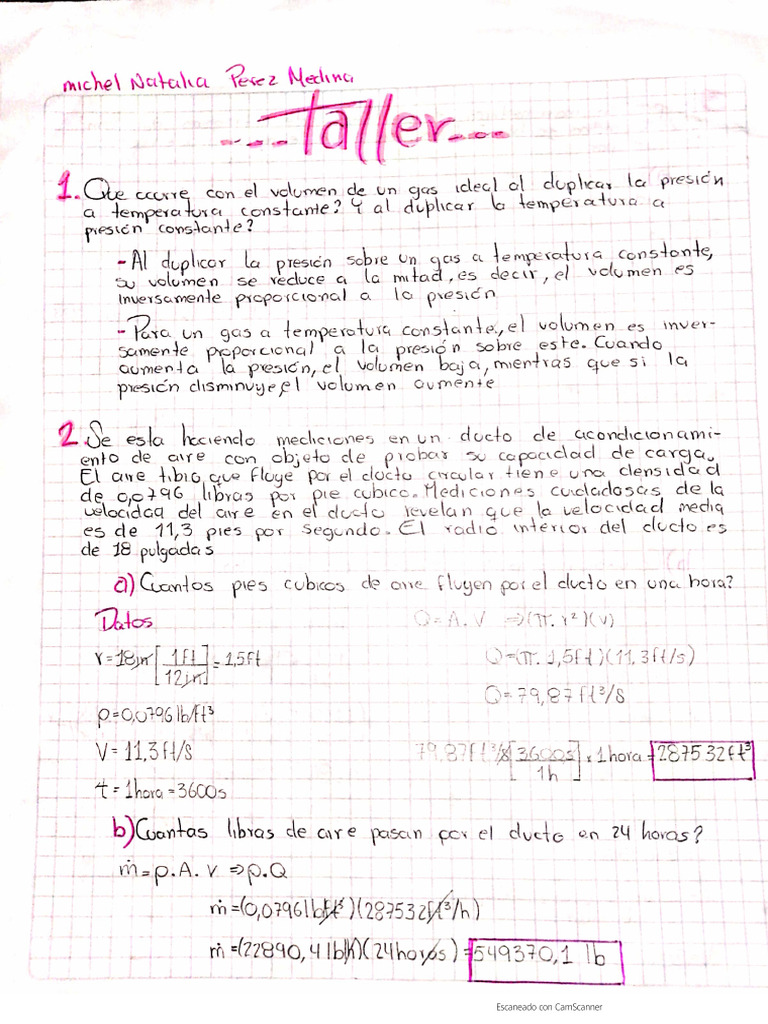 michel Natalia Perez Medina
----Taller---
1. Que ocurre con el volumen de un gas ideal al duplicar la presión
a temperatura constante? Y al duplicar la temperatura a
presión constante?
- Al duplicar la presión sobre un gas a temperatura constante,
su volumen se reduce a la mitad, es decir, el volumen es
inversamente proporcional a la presión
- Para un gas a temperatura constante, el volumen es inver-
samente proporcional a la presión sobre este. Cuando
aumenta la presión, el volumen baja, mientras que si la
presión disminuye, el volumen aumente
2. Se esta haciendo mediciones en un ducto de acondicionami-
ento de aire con objeto de probar su capacidad de carga.
El aire tibio que fluye por el ducto circular tiene una densidad
de 0,0796 libras por pie cubico. Mediciones cuidadosas de la
velocidad del aire en el ducto revelan que la velocidad media
es de 11,3 pies por segundo. El radio interior del ducto es
de 18 pulgadas
a) Cuantos pies cubicos de aire fluyen por el ducto en una hora?
Datos
Q = A. V ⇒ (π. r²)(v)
r = 18in [1ft / 12in] = 1,5ft
Q = (π. 1,5ft)(11,3ft/s)
Q = 79,87 ft³/s
ρ = 0,0796 lb/ft³
V = 11,3 ft/s
79.87ft³/s [3600s / 1h] x 1hora = 287532ft³
t = 1hora = 3600s
b) Cuantas libras de aire pasan por el ducto en 24 horas?
ṁ = ρ. A. v ⇒ ρ. Q
ṁ = (0,0796 lb/ft³)(287532ft³/h)
ṁ = (22890,4 lb/h)(24horas) = 549370,1 lb
Escaneado con CamScanner